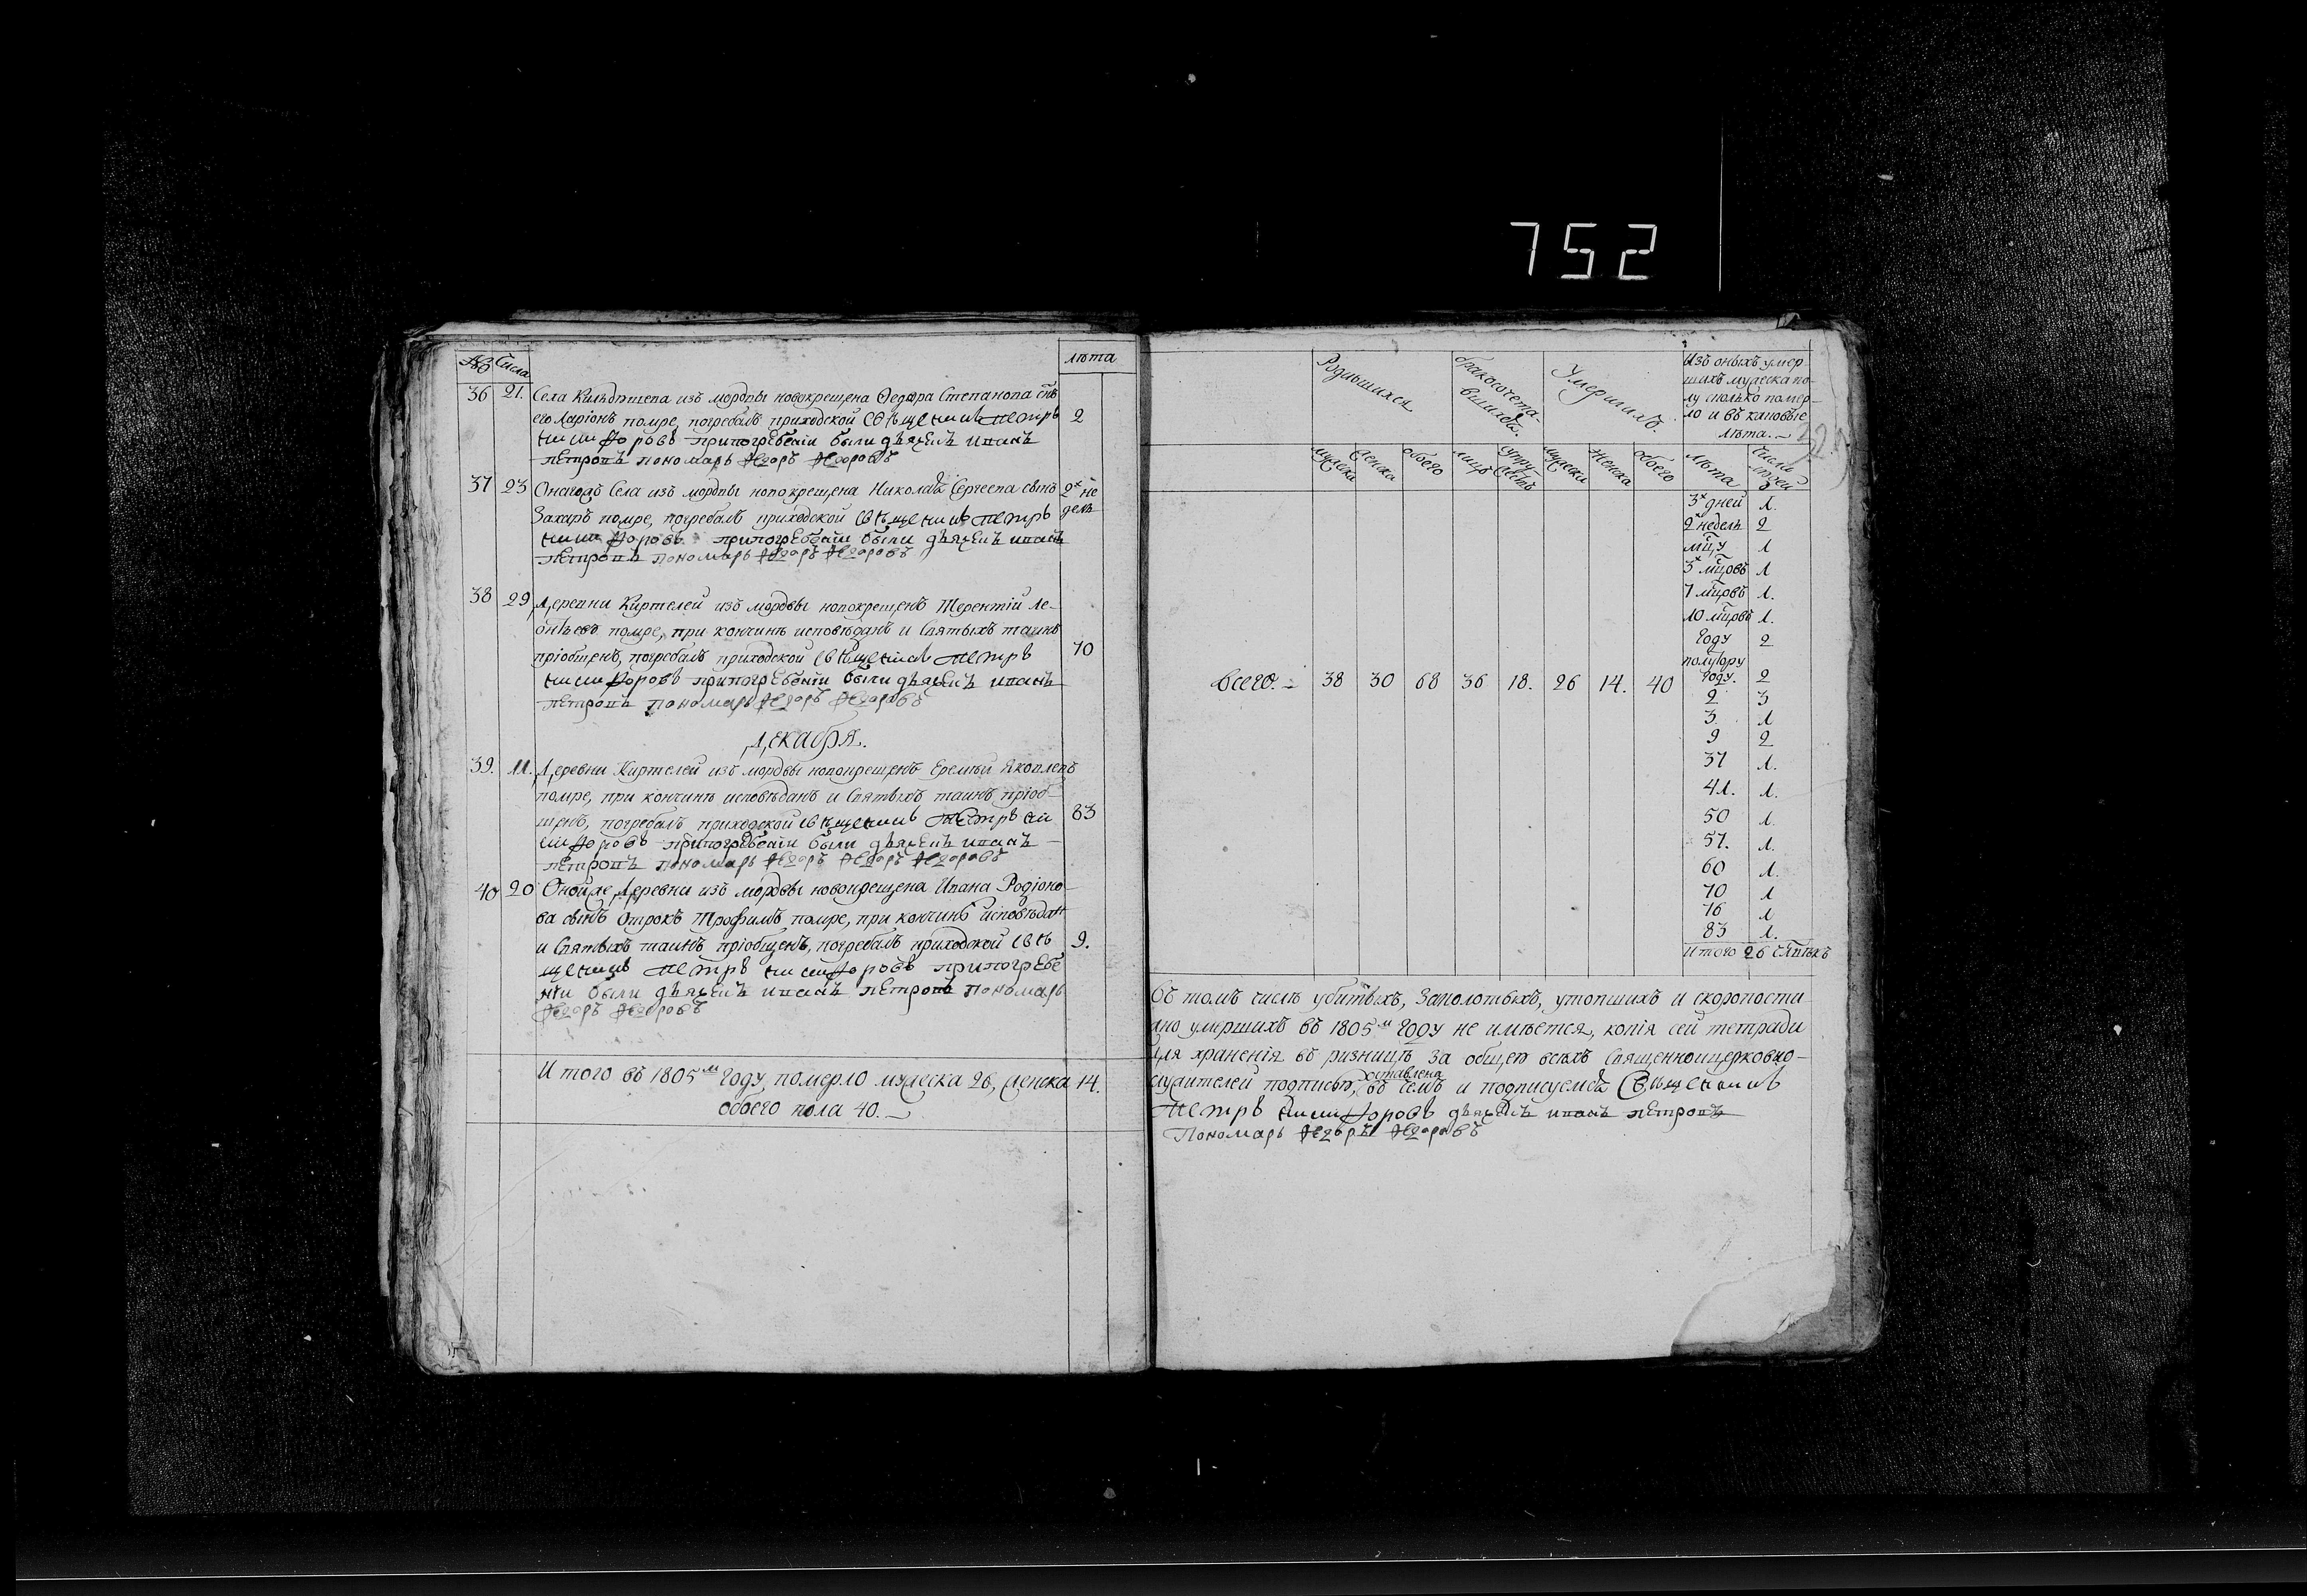 752
№ Числа лѣта
36 21. Села Кильдюшева изъ мордвы новокрещена Ѳедора Степанова сынъ
его Ларіонъ помре, погребалъ приходской священникъ Петръ 2
Никифоровъ при погребеніи были дьячекъ Иванъ
Петровъ пономарь Егоръ Егоровъ
37 23 Онагожъ Села изъ мордвы новокрещена Николая Сергеева сынъ 2х не
Захаръ помре, погребалъ приходской священникъ Петръ дель
Никифоровъ при погребеніи были дьячекъ Иванъ
Петровъ пономарь Егоръ Егоровъ
38 29 Деревни Киртелей изъ мордвы новокрещенъ Терентій Ле-
онтьевъ помре, при кончинѣ исповѣданъ и Святыхъ таинъ
пріобщенъ, погребалъ приходской священникъ Петръ 70
Никифоровъ при погребеніи были дьячекъ Иванъ
Петровъ пономарь Егоръ Егоровъ
Декабря.
39. 11. Деревни Киртелей изъ мордвы новокрещенъ Еремѣй Яковлевъ
помре, при кончинѣ исповѣданъ и Святыхъ таинъ пріоб-
щенъ, погребалъ приходской священникъ Петръ Ни 83
кифоровъ при погребеніи были дьячекъ Иванъ
Петровъ пономарь Егоръ Егоръ Егоровъ
40 20 Оной же Деревни изъ мордвы новокрещена Ивана Родіоно-
ва сынъ отрокъ Трофимъ помре, при кончинѣ исповѣданъ
и Святыхъ таинъ пріобщенъ, погребалъ приходской свя 9.
щенникъ Петръ Никифоровъ при погребе
ніи были дьячекъ Иванъ Петровъ пономарь
Егоръ Егоровъ
Итого въ 1805м Году померло мужеска 26, женска 14.
обоего пола 40.
Родившихся бракосочета- Умершихъ. Изъ оныхъ умер
вшихся. шихъ мужеска по-
лу сколько помер-
ло и въ каковые
лѣта.
мужеска женска обоего лицъ супружествъ мужеска женска обоего лѣта число людей
3х дней 1.
2х недель 2
мцу 1
3х мцовъ 1
7 мцовъ 1.
10 мцовъ 1.
Году 2
полутору
году. 2
всего. 38 30 68 36 18. 26 14. 40
2 3
3. 1
9 2
37 1.
41. 1.
50 1.
57. 1.
60 1.
70 1
76 1
83 1.
Итого 26
въ томъ числѣ убитыхъ, заколотыхъ, утопшихъ и скоропости
жно умершихъ въ 1805м Году не имѣется, копія сей тетради
для храненія въ ризницѣ за общею всѣхъ Священноицерковно-
оставлена
служителей подписью, въ чемъ и подписуемся Священникъ
Петръ Никифоровъ дьячекъ Иванъ Петровъ
Пономарь Егоръ Егоровъ